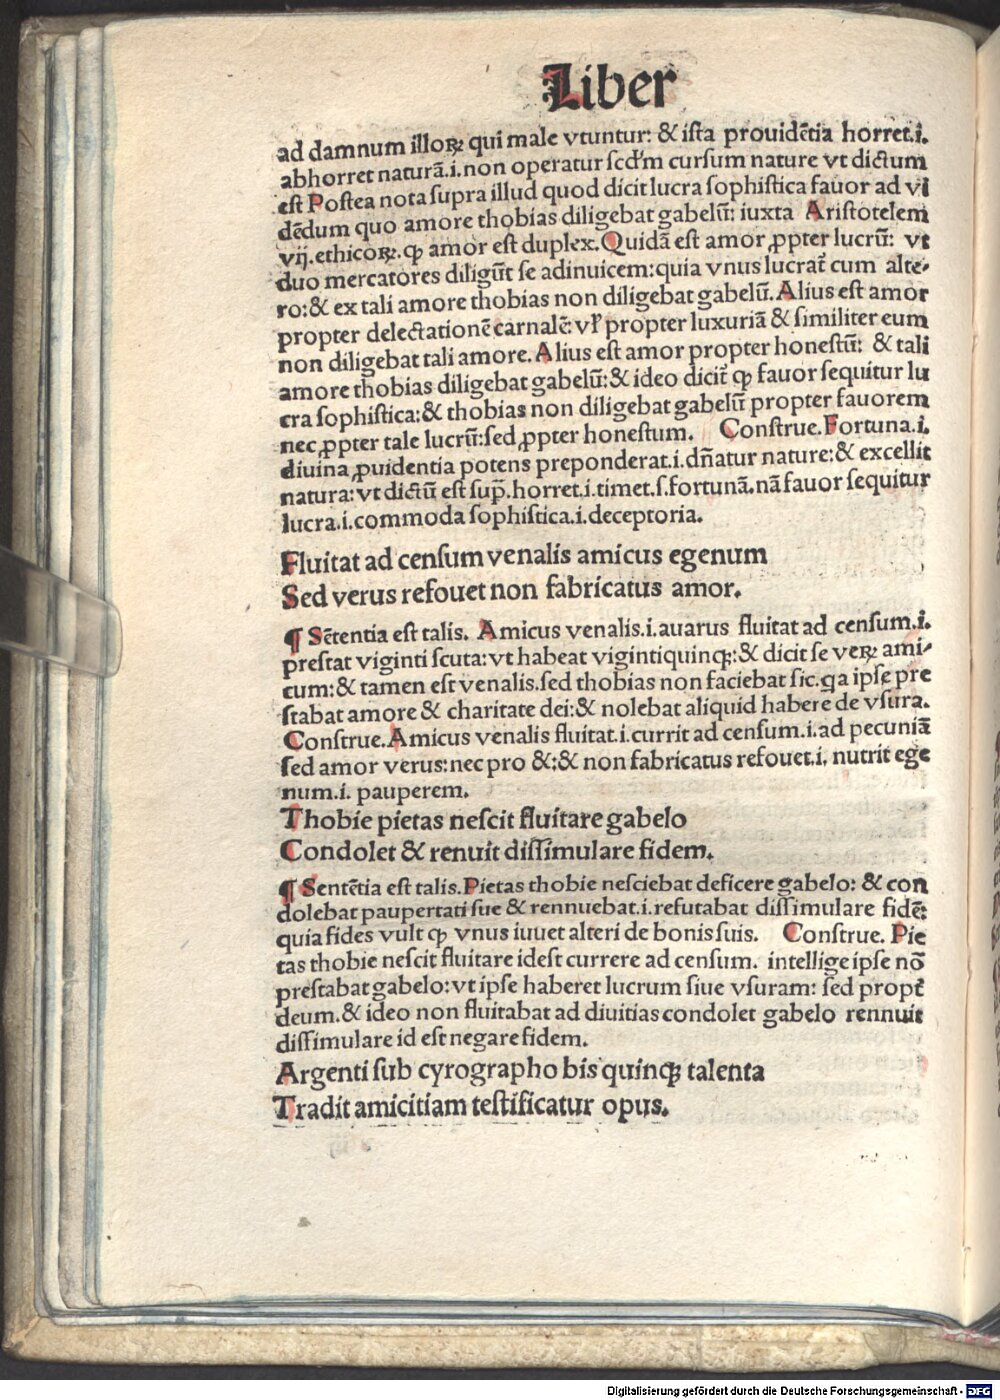 Liber
ad damnum illoꝝ qui male vtuntur: & ista prouidẽtia horret.i.
abhorret naturã.i.non operatur scd'm cursum nature vt dictum
est Postea nota supra illud quod dicit lucra sophistica fauor ad vi
dẽdum quo amore thobias diligebat gabelũ: iuxta Aristotelem
vij.ethicoꝝ.ꝙ amor est duplex.Quidã est amor ꝓpter lucrũ: vt
duo mercatores diligũt se adinuicem:quia vnus lucrat̃ cum alte-
ro:& ex tali amore thobias non diligebat gabelũ.Alius est amor
propter delectationẽ carnalẽ: vl' propter luxuriã & similiter eum
non diligebat tali amore.Alius est amor propter honestũ: & tali
amore thobias diligebat gabelũ:& ideo dicit̃ ꝙ fauor sequitur lu
cra sophistica:& thobias non diligebat gabelũ propter fauorem
nec ꝓpter tale lucrũ:sed ꝓpter honestum. Construe.Fortuna.i.
diuina ꝓuidentia potens preponderat.i.dñatur nature:& excellit
natura:vt dictũ est sup̃.horret.i.timet.s.fortunã.nã fauor sequitur
lucra.i.commoda sophistica.i.deceptoria.
Fluitat ad censum venalis amicus egenum
Sed verus refouet non fabricatus amor.
¶ Sẽtentia est talis. Amicus venalis.i.auarus fluitat ad censum.i.
prestat viginti scuta:vt habeat vigintiquinqꝫ:& dicit se veꝝ ami-
cum:& tamen est venalis.sed thobias non faciebat sic.qa ipse pre
stabat amore & charitate dei:& nolebat aliquid habere de vsura.
Construe.Amicus venalis fluitat.i.currit ad censum.i.ad pecuniã
sed amor verus:nec pro &:& non fabricatus refouet.i. nutrit ege
num.i. pauperem.
Thobie pietas nescit fluitare gabelo
Condolet & renuit dissimulare fidem.
¶ Sentẽtia est talis.Pietas thobie nesciebat deficere gabelo: & con
dolebat paupertati sue & rennuebat.i.refutabat dissimulare fidẽ:
quia fides vult ꝙ vnus iuuet alteri de bonis suis. Construe. Pie
tas thobie nescit fluitare idest currere ad censum. intellige ipse nõ
prestabat gabelo:vt ipse haberet lucrum siue vsuram: sed propt̃
deum.& ideo non fluitabat ad diuitias condolet gabelo rennuit
dissimulare id est negare fidem.
Argenti sub cyrographo bis quinqꝫ talenta
Tradit amicitiam testificatur opus.
Digitalisierung gefördert durch die Deutsche Forschungsgemeinschaft - DFG